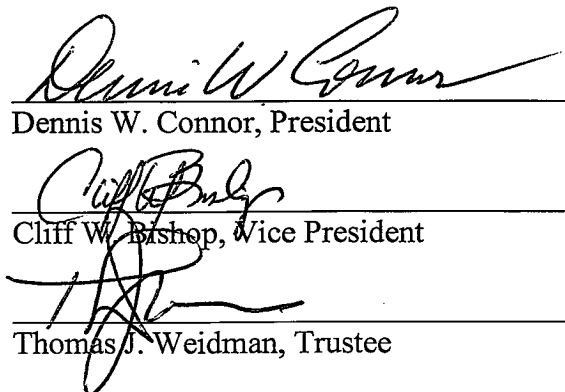 Dennis W Connor
Dennis W. Connor, President
Cliff W. Bishop, Vice President
Thomas J. Weidman, Trustee